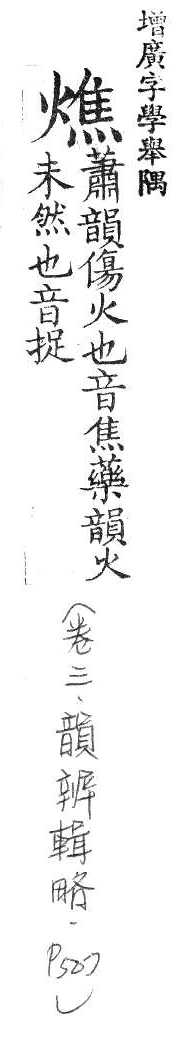 增廣字學舉隅
燋蕭韻傷火也音焦藥韻火
未然也音捉
(卷三、韻辨輯略.P507)